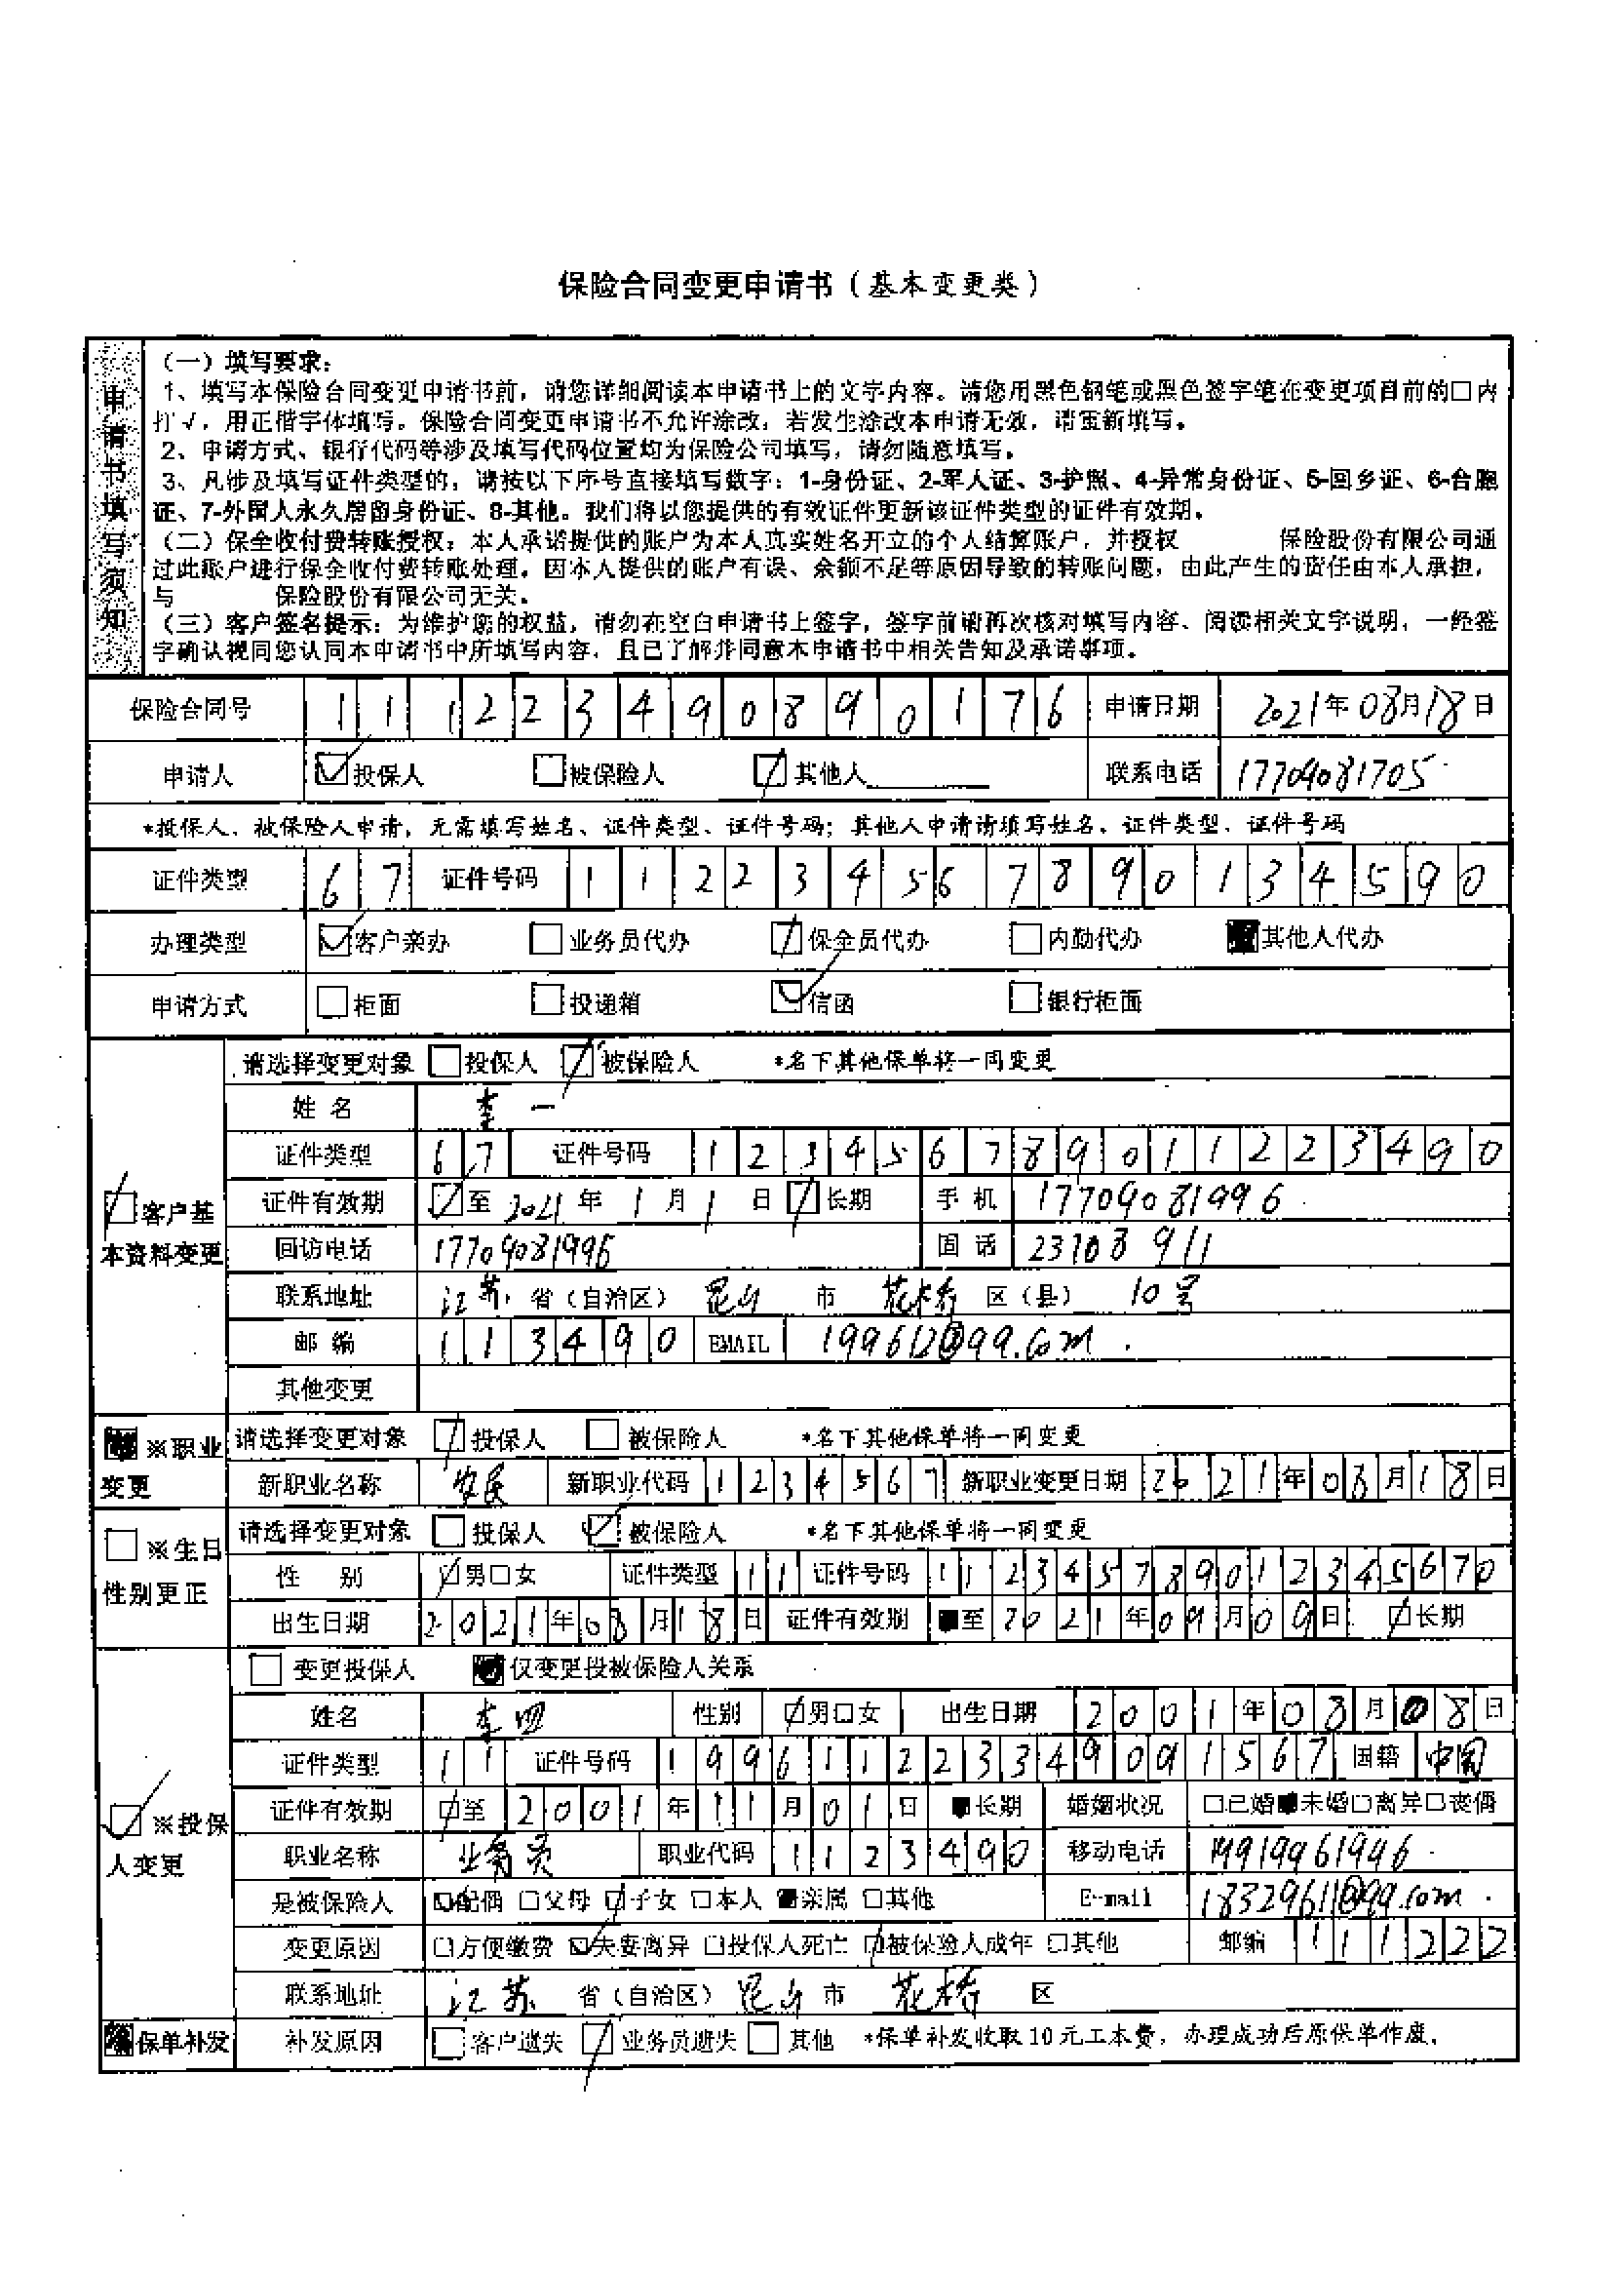 保险合同变更申请书（基本变更类）
申请书填写须知
（一）填写要求：
1、填写本保险合同变更申请书前，请您详细阅读本申请书上的文字内容。请您用黑色钢笔或黑色签字笔在变更项目前的□内
打√，用正楷字体填写。保险合同变更申请书不允许涂改，若发生涂改本申请无效，请重新填写。
2、申请方式、银行代码等涉及填写代码位置均为保险公司填写，请勿随意填写。
3、凡涉及填写证件类型的，请按以下序号直接填写数字：1-身份证、2-军人证、3-护照、4-异常身份证、5-回乡证、6-台胞
证、7-外国人永久居留身份证、8-其他。我们将以您提供的有效证件更新该证件类型的证件有效期。
（二）保全收付费转账授权：本人承诺提供的账户为本人真实姓名开立的个人结算账户，并授权 保险股份有限公司通
过此账户进行保全收付费转账处理。因本人提供的账户有误、余额不足等原因导致的转账问题，由此产生的责任由本人承担，
与 保险股份有限公司无关。
（三）客户签名提示：为维护您的权益，请勿在空白申请书上签字，签字前请再次核对填写内容、阅读相关文字说明，一经签
字确认视同您认同本申请书中所填写内容，且已了解并同意本申请书中相关告知及承诺事项。
保险合同号 111223490890176 申请日期 2021年08月18日
申请人 ☑投保人 □被保险人 ☑其他人 联系电话 17704081705
*投保人、被保险人申请，无需填写姓名、证件类型、证件号码；其他人申请请填写姓名、证件类型、证件号码
证件类型 67 证件号码 112234567890134590
办理类型 ☑客户亲办 □业务员代办 ☑保全员代办 □内勤代办 ■其他人代办
申请方式 □柜面 □投递箱 ☑信函 □银行柜面
请选择变更对象 □投保人 ☑被保险人 *名下其他保单将一同变更
姓名 李一
证件类型 67 证件号码 123456789011223490
☑客户基本资料变更
证件有效期 ☑至2021年1月1日 ☑长期 手机 17709081996
回访电话 17704081996 固话 23708911
联系地址 江苏省（自治区） 昆山市 花桥区（县） 10号
邮编 113490 EMAIL 199612@99.com
其他变更
■※职业变更
请选择变更对象 ☑投保人 □被保险人 *名下其他保单将一同变更
新职业名称 农民 新职业代码 1234567 新职业变更日期 2021年08月18日
□※生日性别更正
请选择变更对象 □投保人 ☑被保险人 *名下其他保单将一同变更
性别 ☑男□女 证件类型 11 证件号码 112345789012345670
出生日期 2021年08月18日 证件有效期 ■至2021年09月09日 ☑长期
□变更投保人 ■仅变更投被保险人关系
姓名 李四 性别 ☑男□女 出生日期 2001年08月08日
证件类型 11 证件号码 199611223349091567 国籍 中国
☑※投保人变更
证件有效期 ☑至2001年11月01日 ■长期 婚姻状况 □已婚■未婚□离异□丧偶
职业名称 业务员 职业代码 1123490 移动电话 19919961996
是被保险人 ■配偶 □父母 ☑子女 □本人 ■亲属 □其他 E-mail 18329611@99.com
变更原因 □方便缴费 ☑夫妻离异 □投保人死亡 ☑被保险人成年 □其他 邮编 111222
联系地址 江苏省（自治区） 昆山市 花桥区
■保单补发 补发原因 □客户遗失 ☑业务员遗失 □其他 *保单补发收取10元工本费，办理成功后原保单作废。